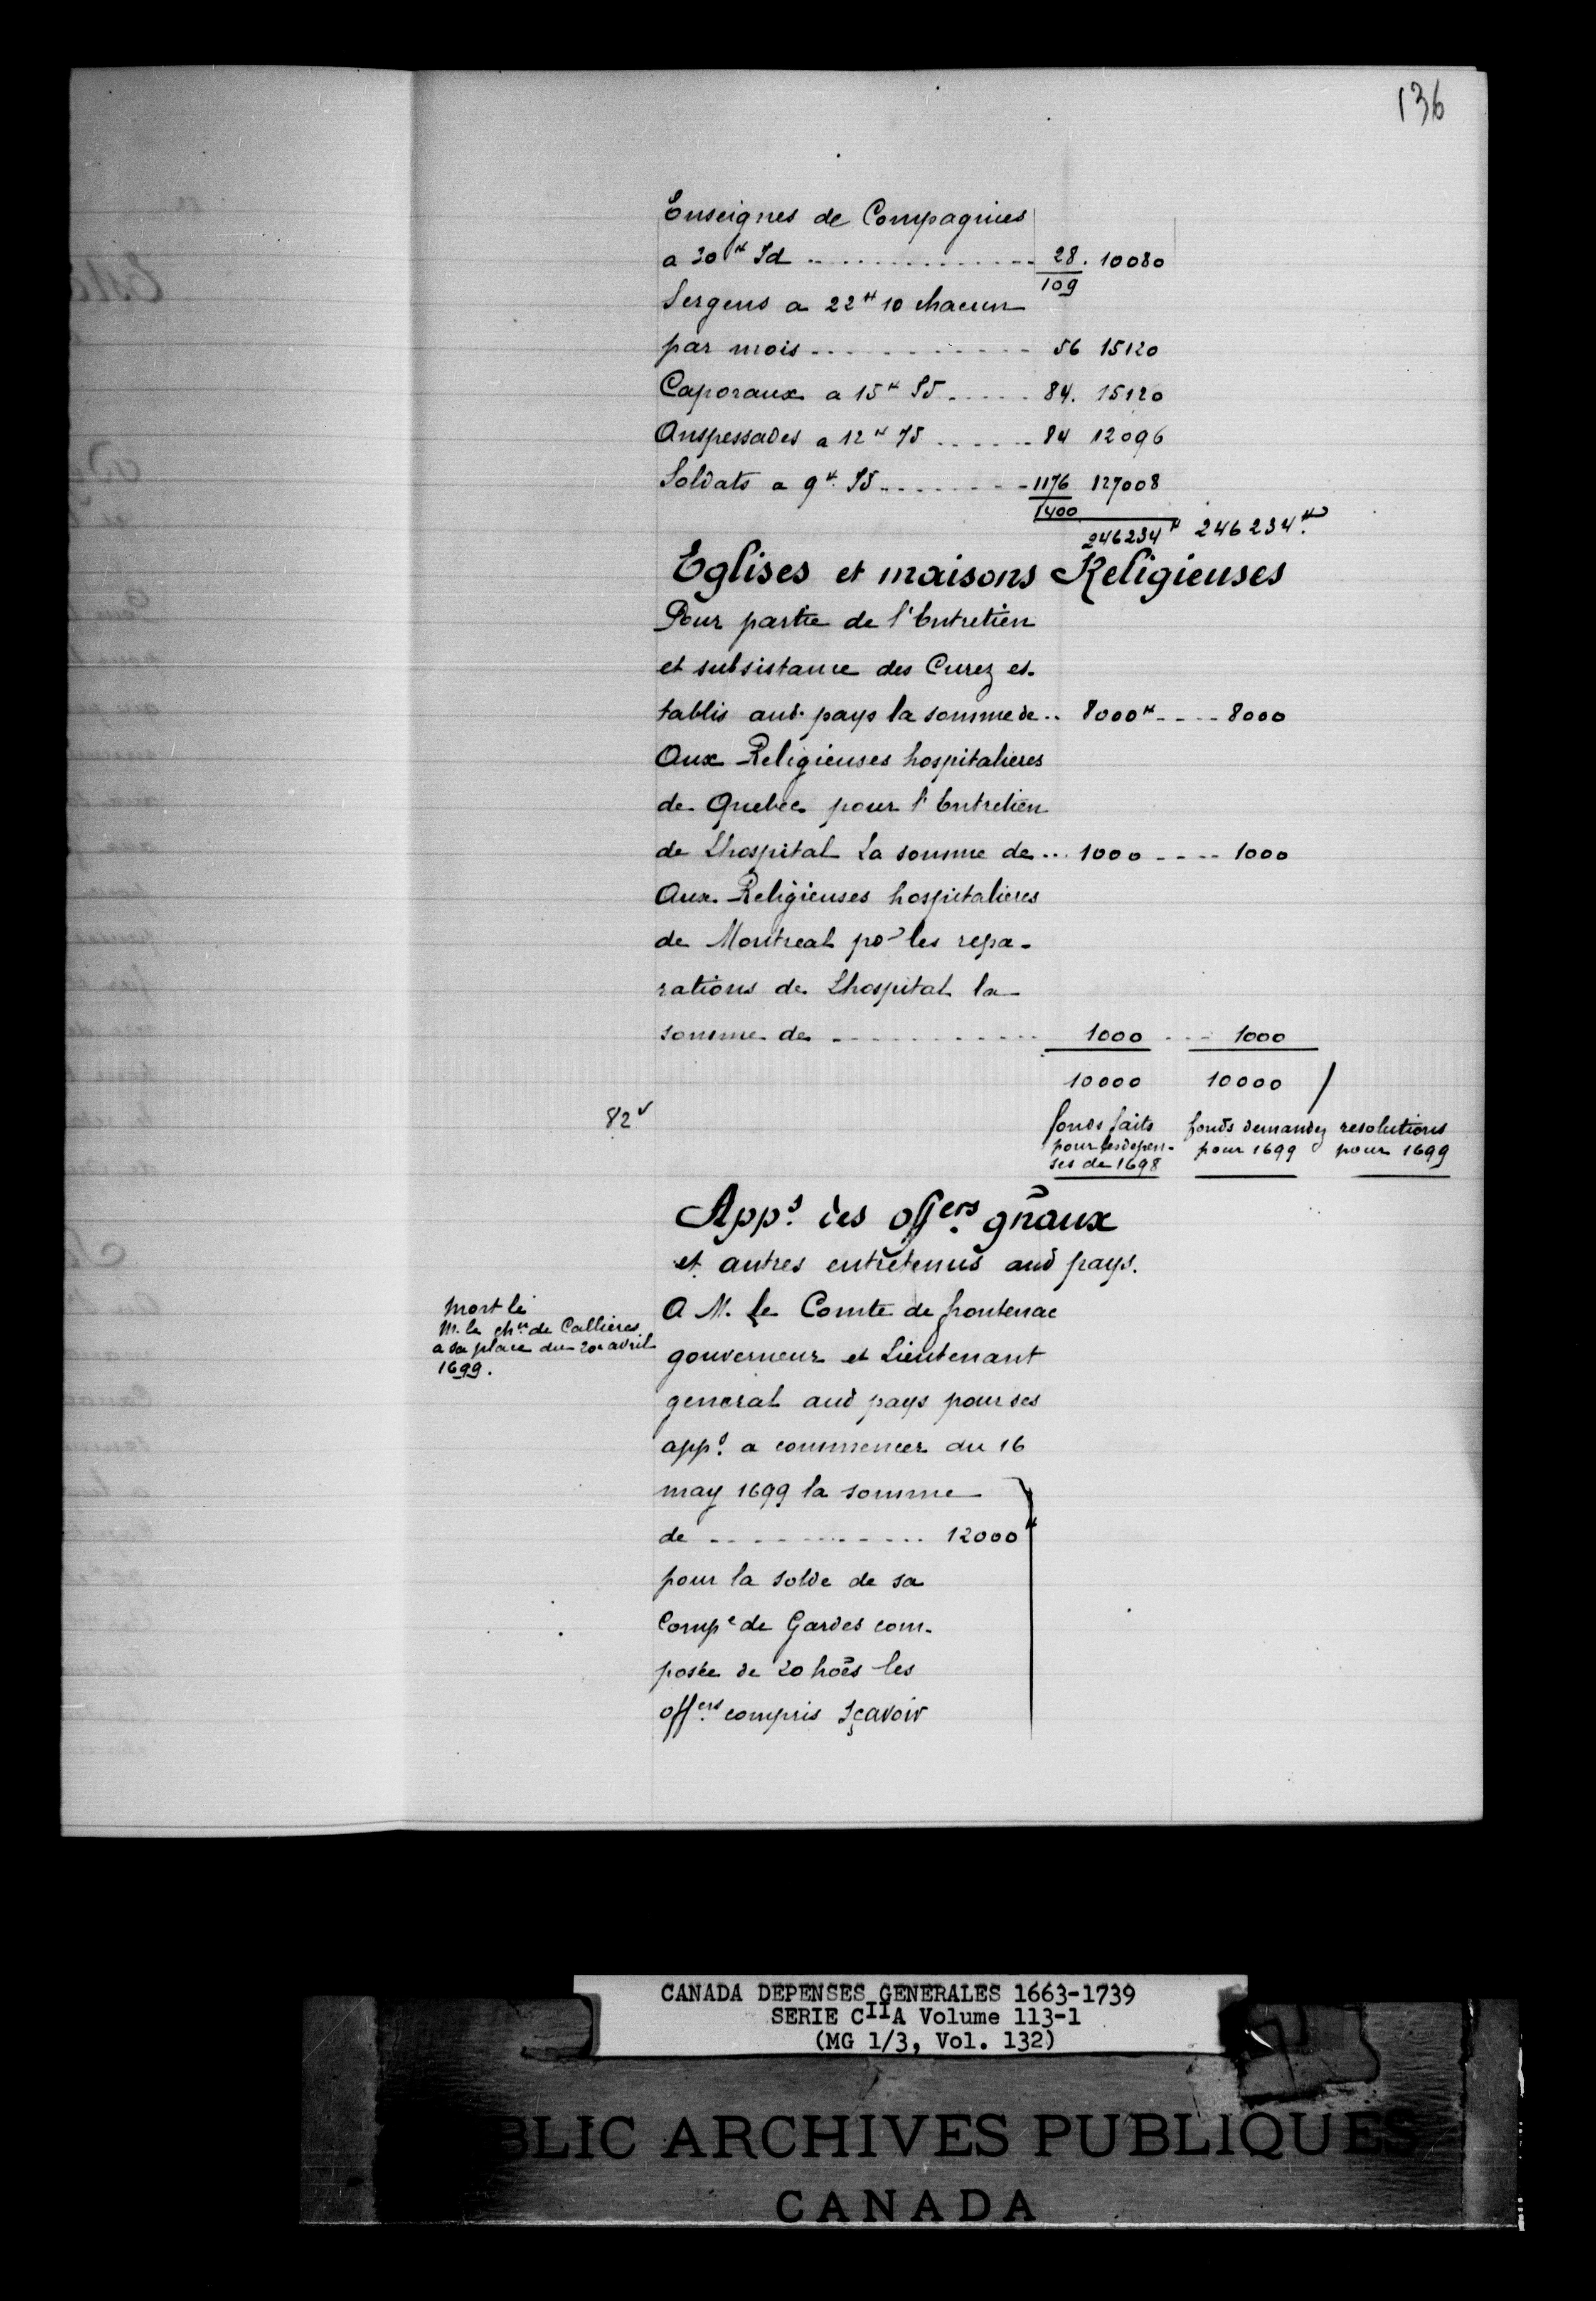 136
Enseignes de Compagnies
a 30# Id .............. 28. 10080
109
Sergens a 22# 10 chacun
par mois ........... 56 15120
Caporaux a 15# Id ..... 84. 15120
Anspessades a 12# Id ...... 84 12096
Soldats a 9# Id ........ 1176 127008
1400
246234# 246234#
Eglises et maisons Religieuses
Pour partie de l'Entretien
et subsistance des Curez es-
tablis aud. pays la somme de .. 8000# .... 8000
Aux Religieuses hospitalieres
de Quebec pour l'Entretien
de Lhospital La somme de ... 1000 .... 1000
Aux Religieuses hospitalieres
de Montreal pr les repa-
rations de Lhospital la
somme de ............ 1000 ... 1000
10000 10000 /
82v
fonds faits fonds demandez resolutions
pour les depen- pour 1699 pour 1699
ses de 1698
Apps des offers gñaux
et autres entretenus aud pays.
mort le
M. le chr de Callieres
a sa place du 20 avril
1699.
A M. le Comte de frontenac
gouverneur et Lieutenant
general aud pays pour ses
apps a commencer du 16
may 1699 la somme
de ............ 12000#
pour la solde de sa
Compe de Gardes com-
posée de 20 hoes les
offers compris sçavoir
CANADA DEPENSES GENERALES 1663-1739
SERIE CIIA Volume 113-1
(MG 1/3, Vol. 132)
BLIC ARCHIVES PUBLIQUES
CANADA